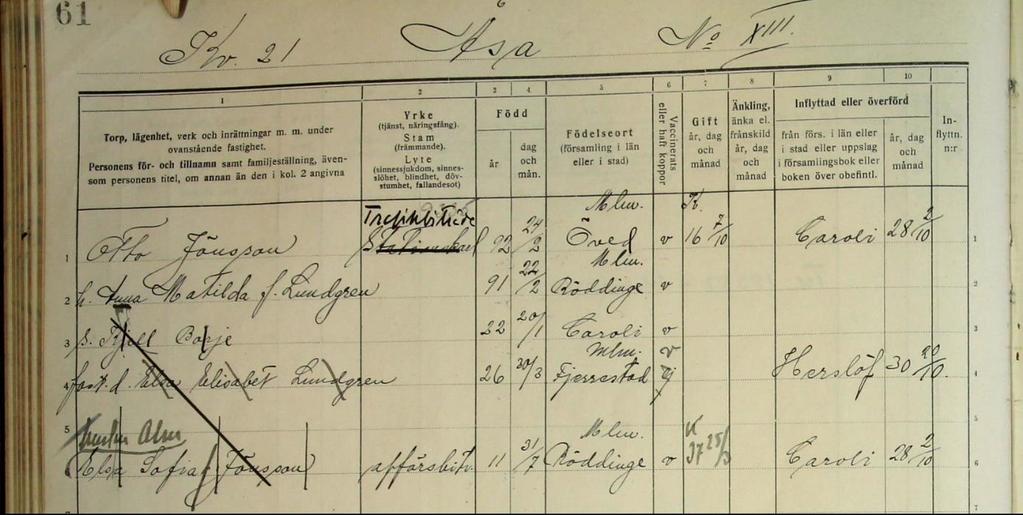 61
6
Kv. 21 Asa No XIII.
1 2 3 4 5 6 7 8 9 10
Torp, lägenhet, verk och inrättningar m. m. under ovanstående fastighet.
Personens för- och tillnamn samt familjeställning, även-
som personens titel, om annan än den i kol. 2 angivna
Yrke
(tjänst, näringsfång).
Stam
(främmande).
Lyte
(sinnessjukdom, sinnes-
slöhet, blindhet, döv-
stumhet, fallandesot)
Född
år
dag
och
mån.
Födelseort
(församling i län
eller i stad)
Vaccinerats
eller haft koppor
Gift
år, dag
och
månad
Änkling,
änka el.
frånskild
år, dag
och
månad
Inflyttad eller överförd
från förs. i län eller
i stad eller uppslag
i församlingsbok eller
boken över obefintl.
år, dag
och
månad
In-
flyttn.
n:r
Mlm. K.
1 Otto Jönsson 92 24/2 Öved v 16 7/10 Caroli 28 2/10 1
Mlm.
2 h. Anna Matilda f. Lundgren 91 22/2 Röddinge v 2
3 s. Kjell Börje 22 20/1 Caroli v 3
Mlm. v
4 fost. d. Elsa Elisabet Lundgren 26 30/3 Fjerrestad ej Herslöf 30 20/10. 4
5 Alm Mlm. K
6 Elsa Sofia Jönsson affärsbitr. 11 31/7 Röddinge v 37 25/3 Caroli 28 2/10 6
7 7